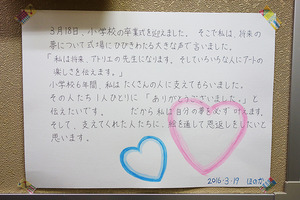 3月18日、小学校の卒業式を迎えました。そこで私は、将来の
夢について式場にひびきわたる大きな声で言いました。
「私は将来、アトリエの先生になります。そしていろいろな人にアートの
楽しさを伝えます。」
小学校6年間、私はたくさんの人に支えてもらいました。
その人たち1人ひとりに「ありがとうございました。」と
伝えたいです。だから私は自分の夢を必ず叶えます。
そして、支えてくれた人たちに、絵を通して恩返しをしたいと
思います。
2016.3.19 ほのか